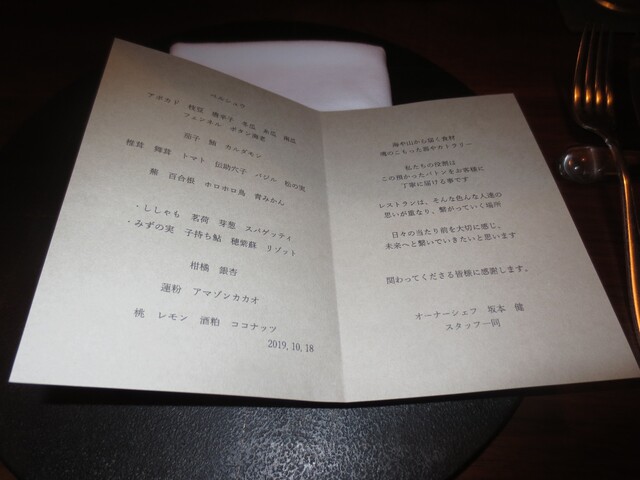 ペルシュウ
アボカド 枝豆 唐辛子 冬瓜 糸瓜 南瓜
フェンネル ボタン海老
茄子 鮪 カルダモン
椎茸 舞茸 トマト 伝助穴子 バジル 松の実
鮪 百合根 ホロホロ鳥 青みかん
・ししゃも 茗荷 芽葱 スパゲッティ
・みずの実 子持ち鮎 穂紫蘇 リゾット
柑橘 銀杏
蓮粉 アマゾンカカオ
桃 レモン 酒粕 ココナッツ
2019.10.18
海や山から届く食材
魂のこもった器やカトラリー
私たちの役割は
この預かったバトンをお客様に
丁寧に届ける事です
レストランは、そんな色んな人達の
思いが重なり、繋がっていく場所
日々の当たり前を大切に感じ、
未来へと繋いでいきたいと思います
関わってくださる皆様に感謝します。
オーナーシェフ 坂本 健
スタッフ一同